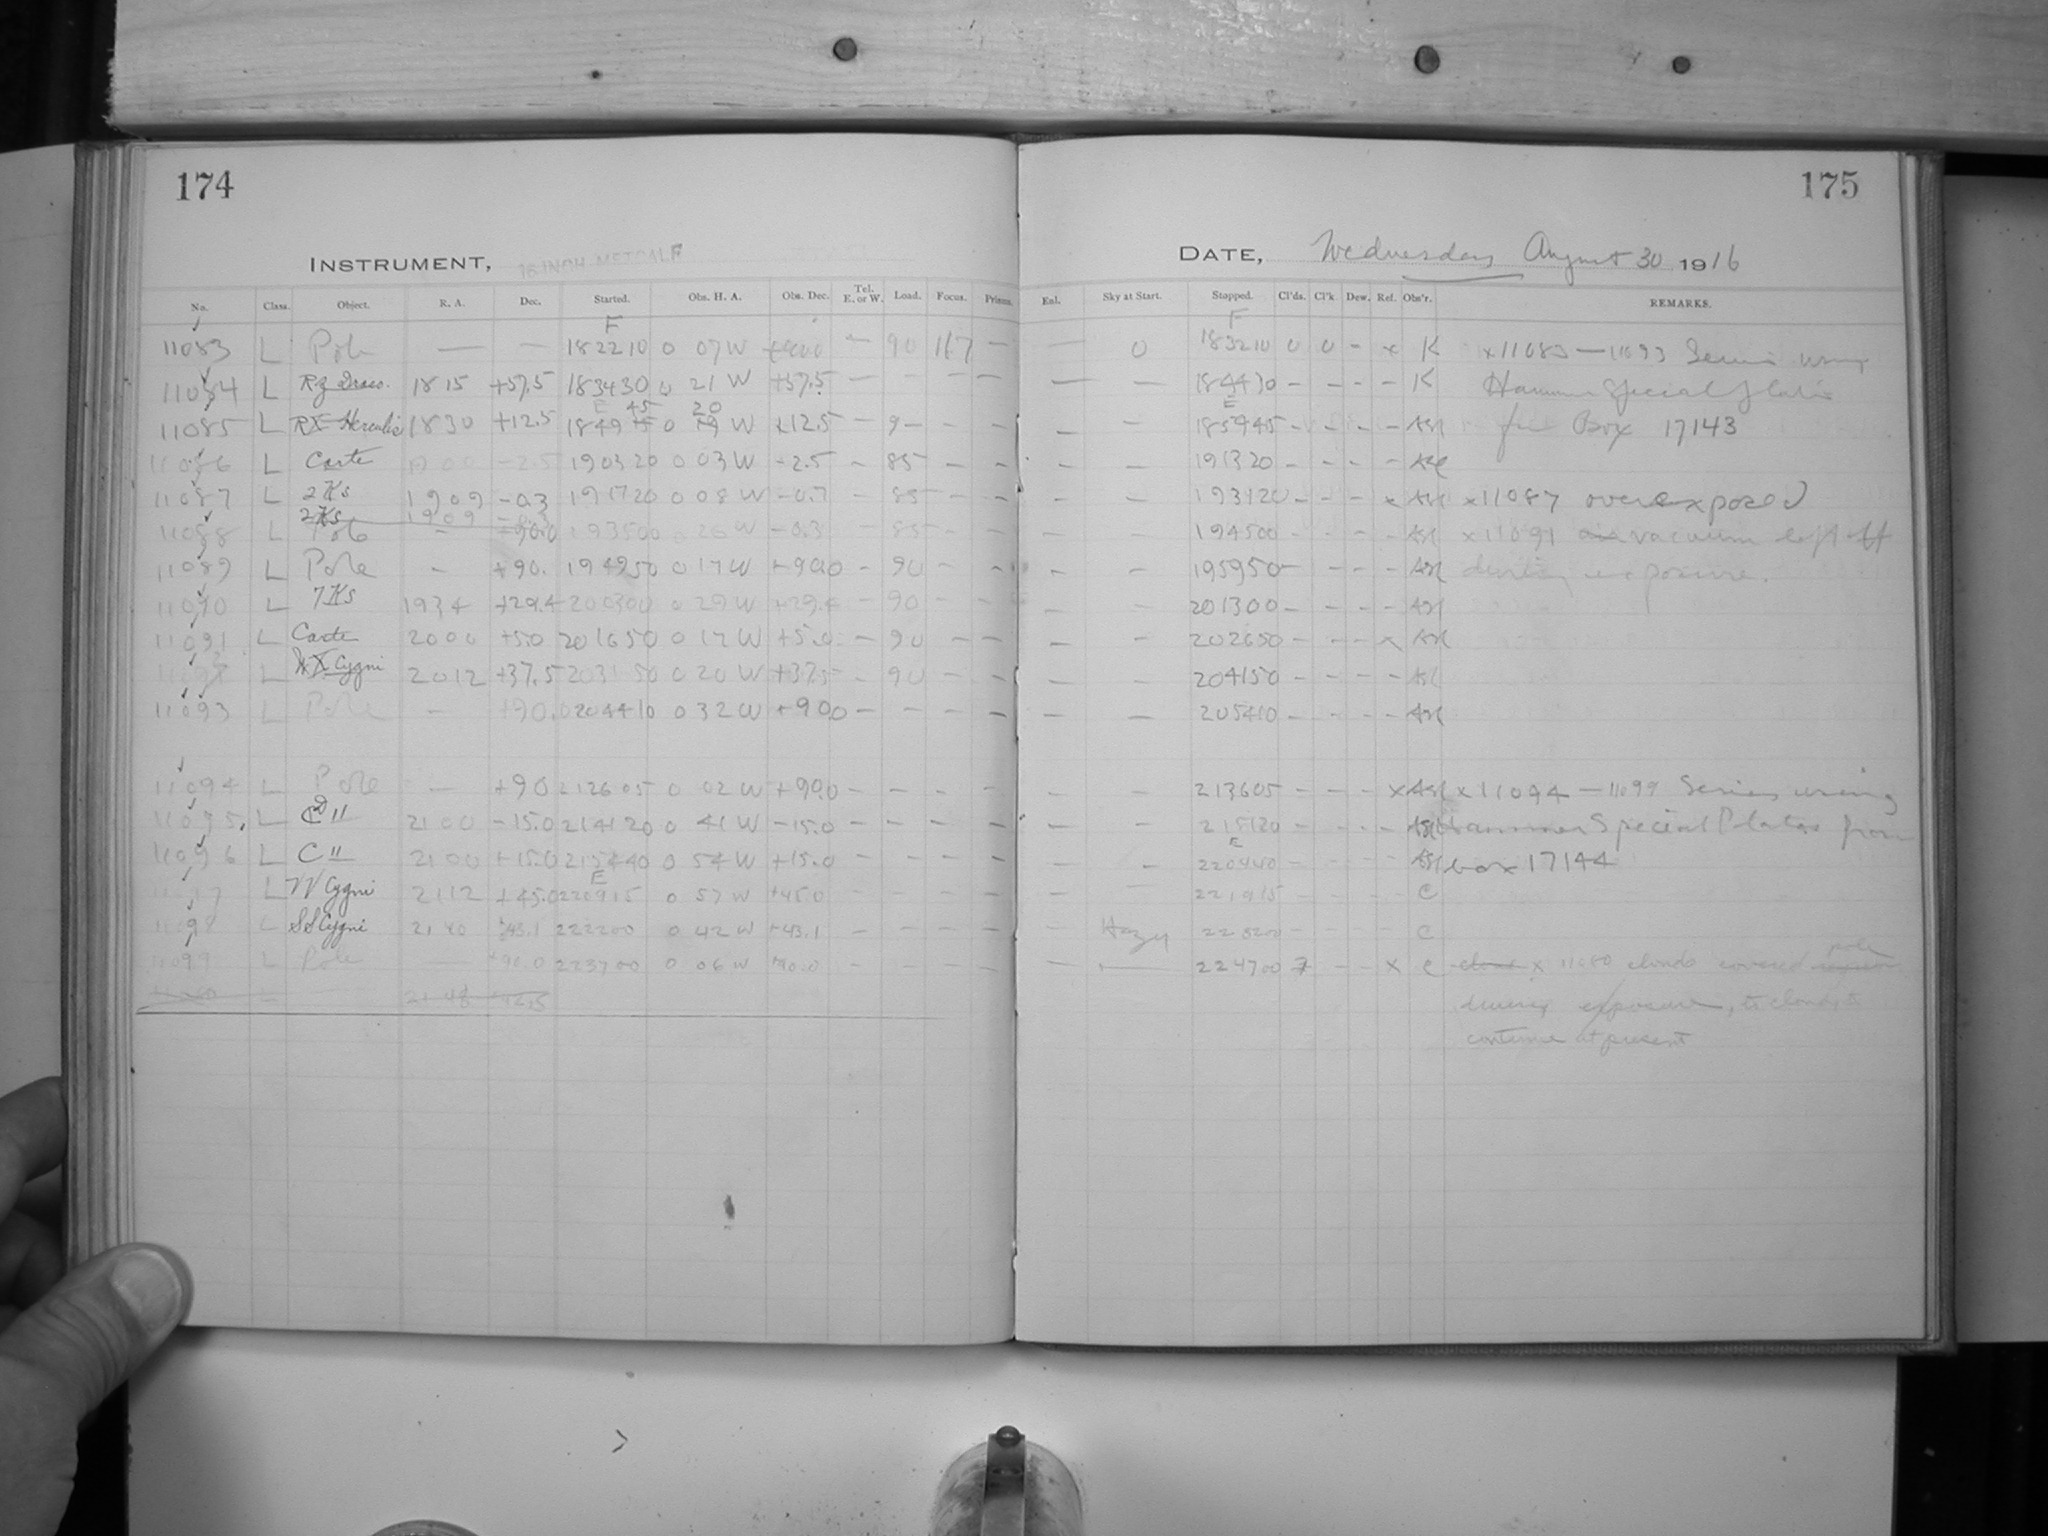 174
175
INSTRUMENT, 16 INCH METCALF
DATE, Wednesday August 30 1916
No. Class. Object. R. A. Dec. Started. Obs. H. A. Obs. Dec. Tel. E. or W. Load. Focus. Prisms. Enl. Sky at Start. Stopped. Cl'ds. Cl'k Dew. Ref. Obs'r. REMARKS.
11083 L Pole — — 182210 0 07 W 90 167 — — 0 183210 0 0 - x K x11083 — 11093 Series using
11084 L RZ Draco. 1815 +57.5 183430 0 21 W +57.5 — — — — — — 184430 - - - - K Hammer Special Plates
11085 L RX Herculis 1830 +12.5 0 W +12.5 - 9- - - - - 185945 - - - - Box 17143
11086 L Carte -2.5 190320 0 03 W -2.5 - 85 - - - - 191320 - - - -
11087 L 2Ks 1909 -0.3 191720 0 08 W - 85 - - - - 193120 - - - x x11087 overexposed
2Ks 1909
11088 L Pole - 193500 0 26 W -0.3 - 85 - - - - 194500 - - - - x11091 vacuum left off
11089 L Pole - +90. 194950 0 17 W +90.0 - 90 - - - - 195950 - - - - during exposure.
11090 L 7Ks 1934 +29.4 200300 0 29 W +29.4 - 90 - - - - 201300 - - - -
11091 L Carte 2000 +5.0 201650 0 12 W +5.0 - 90 - - - - 202650 - - - x
11092 L WX Cygni 2012 +37.5 203150 0 20 W +37.5 - 90 - - - - 204150 - - - -
11093 L Pole - +90.0 204410 0 32 W +90.0 - - - - - - 205410 - - - -
11094 L Pole — +90 212605 0 02 W +90.0 - - - - - - 213605 - - - x x11094 — 11099 Series using
11095. L 2100 -15.0 214120 0 41 W -15.0 - - - - - - 215120 - - - - Hammer Special Plates from
11096 L C 11 2100 +15.0 215440 0 54 W +15.0 - - - - - - 220440 - - - - box 17144
L W Cygni 2112 +45.0 220915 0 57 W +45.0 - - - - - - 221915 - - - - C
11098 L SS Cygni 2140 +43.1 222200 0 42 W +43.1 - - - - - Hazy 223200 - - - - C
11099 L Pole — +90.0 223700 0 06 W +90.0 - - - - - — 224700 7 - - x C x 11080 clouds covered pole
L 2148 +42.5 during exposure, to cloudy to
continue at present